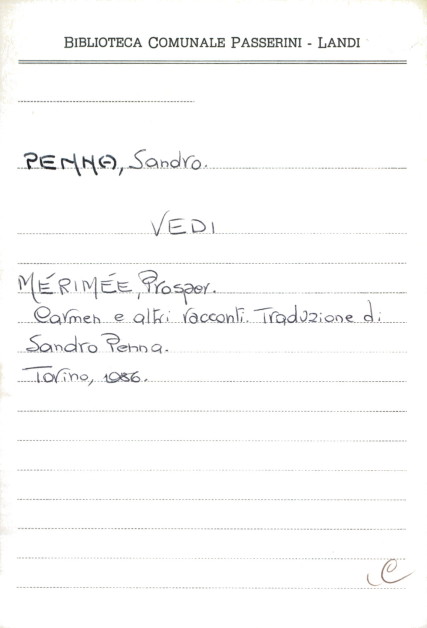 BIBLIOTECA COMUNALE PASSERINI - LANDI
PENNA, Sandro.
VEDI
MÉRIMÉE, Prosper.
Carmen e altri racconti. Traduzione di
Sandro Penna.
Torino, 1986.
C